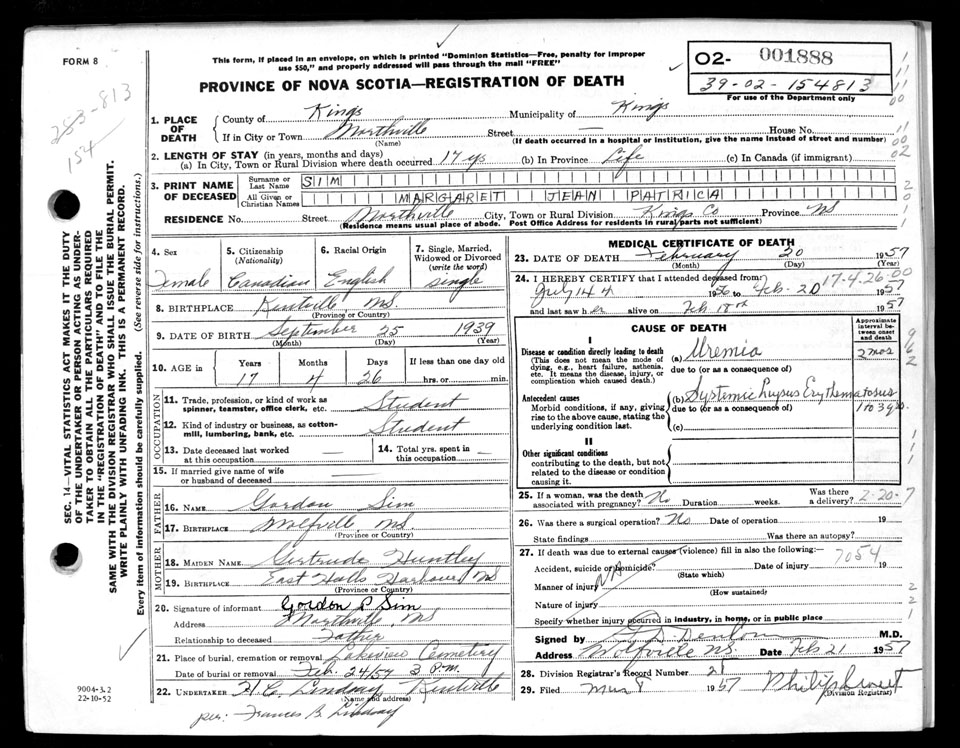 FORM 8
This form, if placed in an envelope, on which is printed "Dominion Statistics—Free, penalty for improper
use $50," and properly addressed will pass through the mail "FREE"
PROVINCE OF NOVA SCOTIA—REGISTRATION OF DEATH
02- 001888
39-02-154813
For use of the Department only
283-813
154
SEC. 14—VITAL STATISTICS ACT MAKES IT THE DUTY
OF THE UNDERTAKER OR PERSON ACTING AS UNDER-
TAKER TO OBTAIN ALL THE PARTICULARS REQUIRED
IN THE "REGISTRATION OF DEATH" AND TO FILE THE
SAME WITH THE DIVISION REGISTRAR WHO SHALL ISSUE THE BURIAL PERMIT.
WRITE PLAINLY WITH UNFADING INK. THIS IS A PERMANENT RECORD.
Every item of information should be carefully supplied. (See reverse side for instructions.)
1. PLACE OF DEATH
County of Kings Municipality of Kings
If in City or Town Northville Street — House No.
(Name) (If death occurred in a hospital or institution, give the name instead of street and number)
2. LENGTH OF STAY (in years, months and days)
(a) In City, Town or Rural Division where death occurred 17 ys (b) In Province Life (c) In Canada (if immigrant)
3. PRINT NAME OF DECEASED
Surname or Last Name SIM
All Given or Christian Names MARGARET JEAN PATRICA
RESIDENCE No. Street Northville City, Town or Rural Division Kings Co Province NS
(Residence means usual place of abode. Post Office Address for residents in rural parts not sufficient)
4. Sex Female
5. Citizenship (Nationality) Canadian
6. Racial Origin English
7. Single, Married, Widowed or Divorced (write the word) Single
8. BIRTHPLACE Kentville NS.
(Province or Country)
9. DATE OF BIRTH September 25 1939
(Month) (Day) (Year)
10. AGE in Years Months Days If less than one day old
17 4 26 hrs. or min.
OCCUPATION
11. Trade, profession, or kind of work as spinner, teamster, office clerk, etc. Student
12. Kind of industry or business, as cotton-mill, lumbering, bank, etc. Student
13. Date deceased last worked at this occupation
14. Total yrs. spent in this occupation
15. If married give name of wife or husband of deceased
FATHER
16. NAME Gordon Sim
17. BIRTHPLACE Wolfville NS
(Province or Country)
MOTHER
18. MAIDEN NAME Gertrude Huntley
19. BIRTHPLACE East Halls Harbour NS
(Province or Country)
20. Signature of informant Gordon P Sim
Address Northville NS
Relationship to deceased Father
21. Place of burial, cremation or removal Lakeview Cemetery
Date of burial or removal Feb. 24/57 3 P.m.
22. UNDERTAKER H C. Lindsay Kentville
(Name and address)
per: Frances B. Lindsay
9004-3.2
22-10-52
MEDICAL CERTIFICATE OF DEATH
23. DATE OF DEATH February 20 1957
(Month) (Day) (Year)
24. I HEREBY CERTIFY that I attended deceased from 17-4-26-00
1956 to Feb-20 1957
and last saw her alive on Feb 18 1957
CAUSE OF DEATH
Approximate interval between onset and death
I
Disease or condition directly leading to death
(This does not mean the mode of dying, e.g., heart failure, asthenia, etc. It means the disease, injury, or complication which caused death.)
(a) Uremia 2 mos
due to (or as a consequence of)
Antecedent causes
Morbid conditions, if any, giving rise to the above cause, stating the underlying condition last.
(b) Systemic Lupus Erythematosus
due to (or as a consequence of)
(c)
II
Other significant conditions
contributing to the death, but not related to the disease or condition causing it.
25. If a woman, was the death associated with pregnancy? No Duration weeks. Was there a delivery? 2-20-7
26. Was there a surgical operation? No Date of operation 19
State findings Was there an autopsy?
27. If death was due to external causes (violence) fill in also the following: 7054
Accident, suicide or homicide? Date of injury 19
(State which)
Manner of injury NA
(How sustained)
Nature of injury
Specify whether injury occurred in industry, in home, or in public place
Signed by M.D.
Address Wolfville NS. Date Feb 21 1957
28. Division Registrar's Record Number 21
29. Filed 1957 Philip Sweet
(Division Registrar)